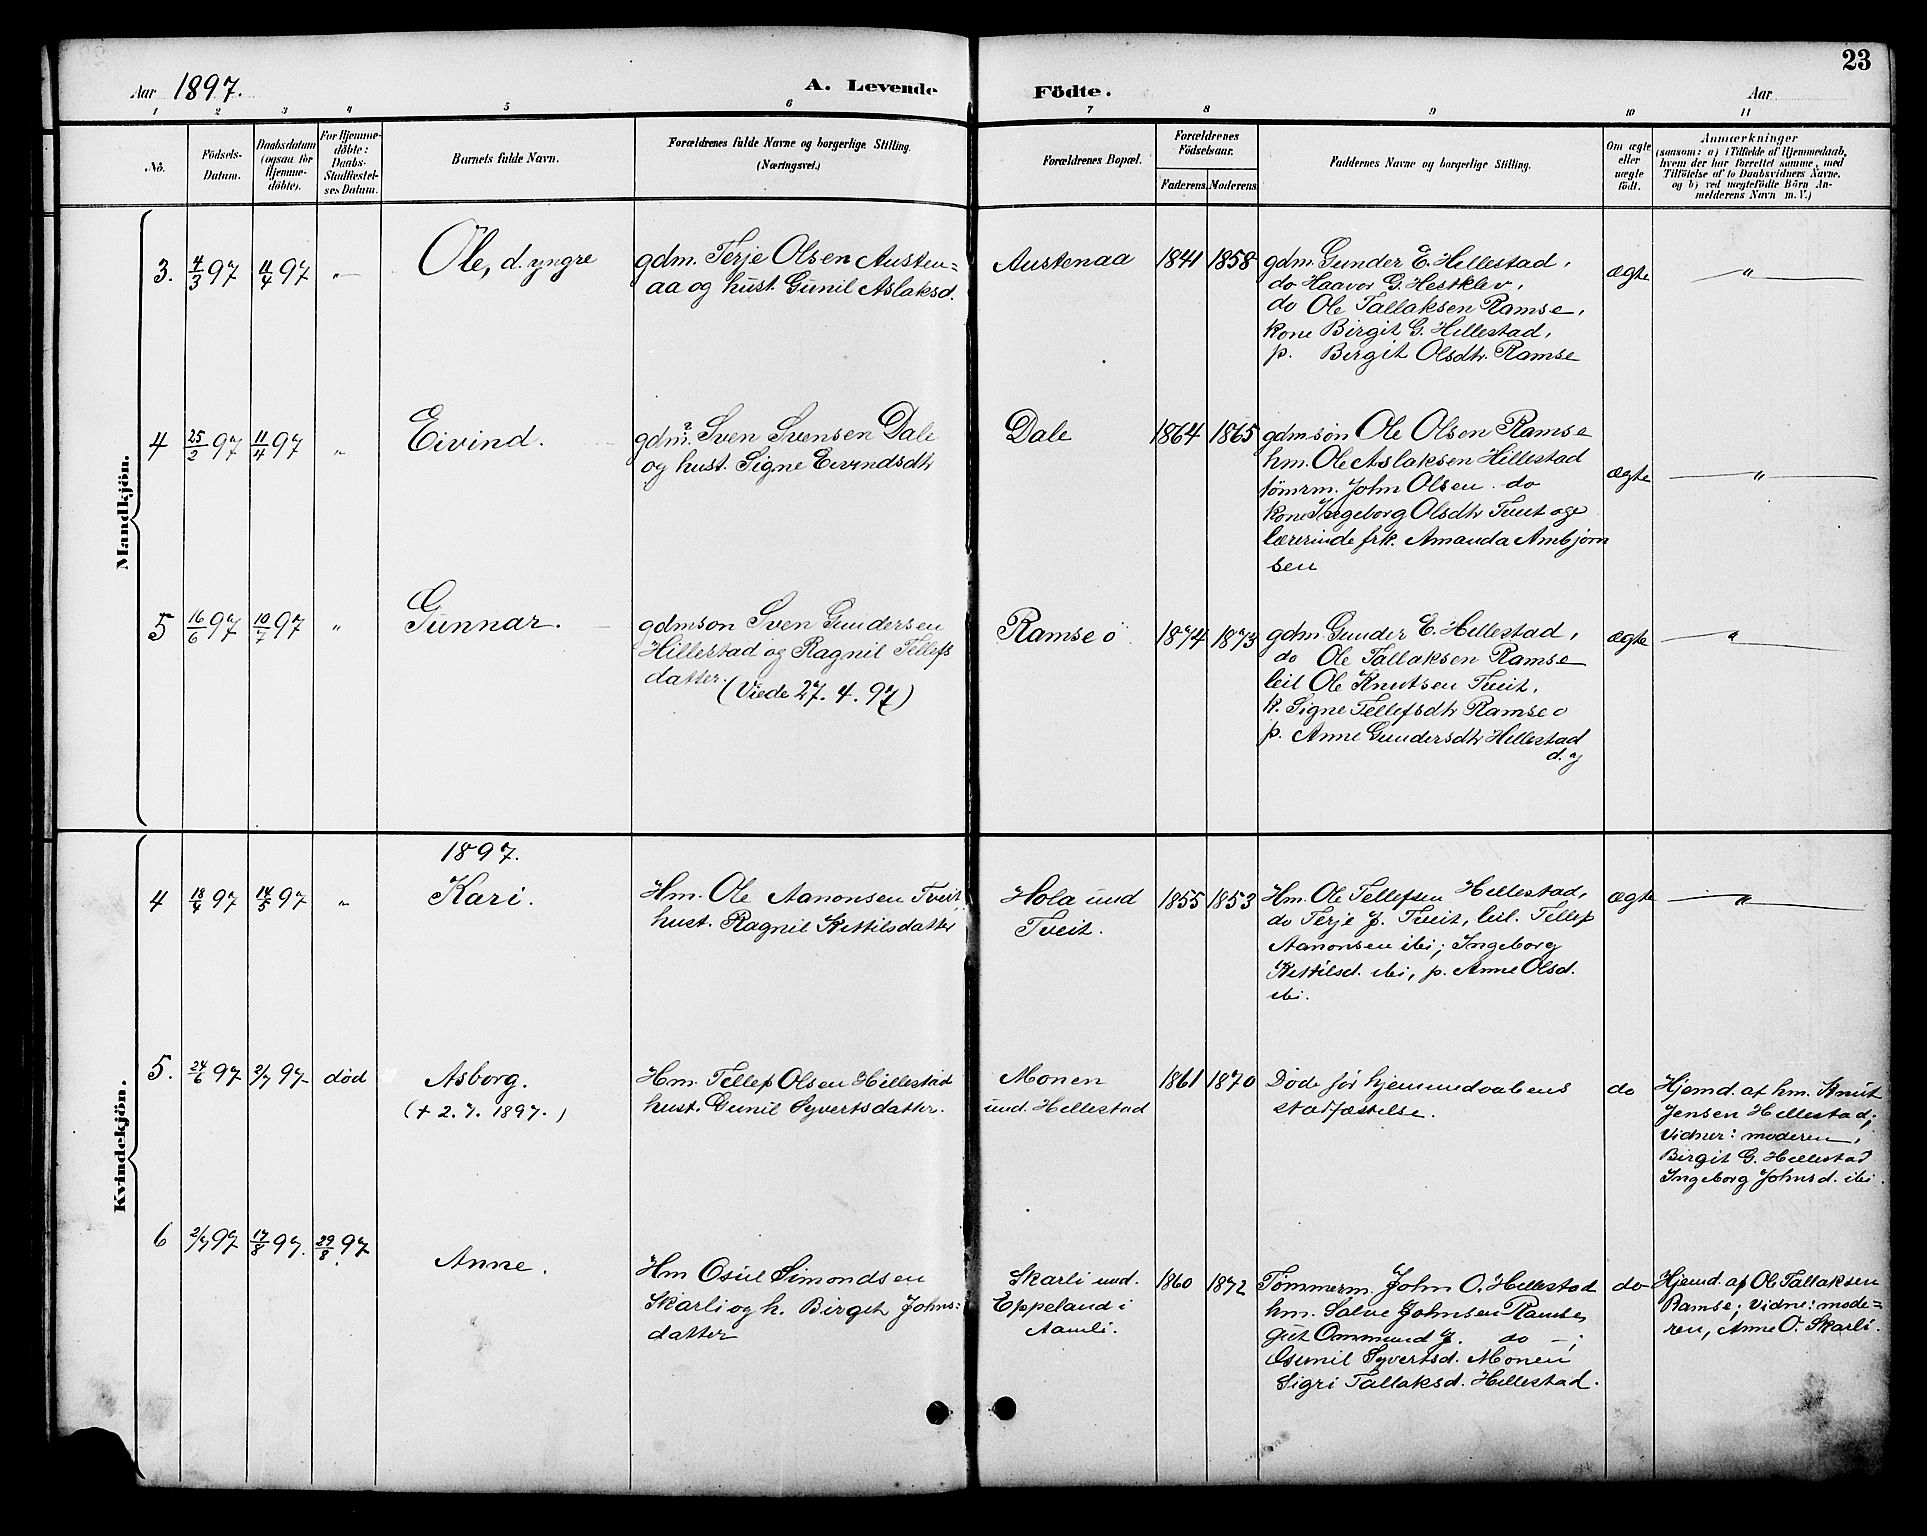 23
Aar 1897. A. Levende Födte. Aar
1 2 3 4 5 6 7 8 9 10 11
No.
Födsels-
Datum.
Daabsdatum
(ogsaa for
Hjemme-
döbte).
For Hjemme-
döbte:
Daabs-
Stadfæstel-
ses Datum.
Barnets fulde Navn.
Forældrenes fulde Navne og borgerlige Stilling.
(Næringsvei.)
Forældrenes Bopæl.
Forældrenes
Födselsaar.
Faderens. Moderens.
Faddernes Navne og borgerlige Stilling.
Om ægte
eller
uægte
födt.
Anmærkninger
(saasom: a) i Tilfælde af Hjemmedaab,
hvem der har forrettet samme, med
Tilföielse af to Daabsvidners Navne,
og b) ved uægtefödte Börn An-
melderens Navn m. V.)
Mandkjön.
3. 4/3 97 11/4 97 "
Ole, d. yngre
gdm. Terje Olsen Austen=
aa og hust. Gunil Aslaksd.
Austenaa
1841 1858
gdm. Gunder E. Hillestad,
do Haavor G. Hestklev,
do Ole Tallaksen Ramse,
kone Birgit G. Hillestad,
p. Birgit Olsdtr. Ramse
ægte
"
4 25/2 97 11/4 97 "
Eivind.
gdm. Sven Svensen Dale
og hust. Signe Eivindsdtr
Dale
1864 1865
gdmsön Ole Olsen Ramse
hm. Ole Aslaksen Hillestad
tömrm. John Olsen do
kone Ingeborg Olsdtr Tveit og
lærerinde frk. Amanda Ambjörn
sen
ægte
"
5 16/6 97 10/7 97 "
Gunnar.
gdmson Sven Gundersen
Hillestad og Ragnil Tellefs
datter.
(Viede 27. 4. 97)
Ramse ö
1874 1873
gdm. Gunder E. Hillestad,
do Ole Tallaksen Ramse
leil Ole Knutsen Tveit,
k. Signe Tellefsdtr Ramse ö
p. Anne Gundersdtr Hillestad
d. y
ægte
"
Kvindekjön.
1897.
4 18/4 97 14/5 97 "
Kari.
Hm. Ole Aanonsen Tveit,
hust. Ragnil Kittilsdatter
Hola und
Tveit.
1855 1853
Hm. Ole Tellefsen Hillestad,
do Terje J. Tveit, leil. Tellef
Aanonsen ibi; Ingeborg
Kittilsd. ibi, p. Anne Olsd.
ibi.
ægte
"
5. 24/6 97 2/7 97 död
Asborg.
(+ 2. 7. 1897.)
Hm. Tellef Olsen Hillestad
hust. Gunil Syvertsdatter.
Monen
und. Hillestad
1861 1870
Döde för hjemmedaabens
stadfæstelse.
do
Hjemd. af hm. Knut
Jensen Hillestad;
Vidner: moderen,
Birgit G. Hillestad
Ingeborg Johnsd. ibi.
6 2/7 97 17/8 97. 29/8 97
Anne.
Hm Osul Simondsen
Skarli og h. Birgit Johns=
datter
Skarli und.
Eppeland i
Aamli.
1860 1872
Tömmerm. John O. Hillestad
hm. Salve Johnsen Ramse,
gut Ommund J. do;
Gunil Syvertsd. Monen
Sigri Tallaksd. Hillestad.
do
Hjemd. af Ole Tallaksen
Ramse; Vidne: mode=
ren, Anne O. Skarli.